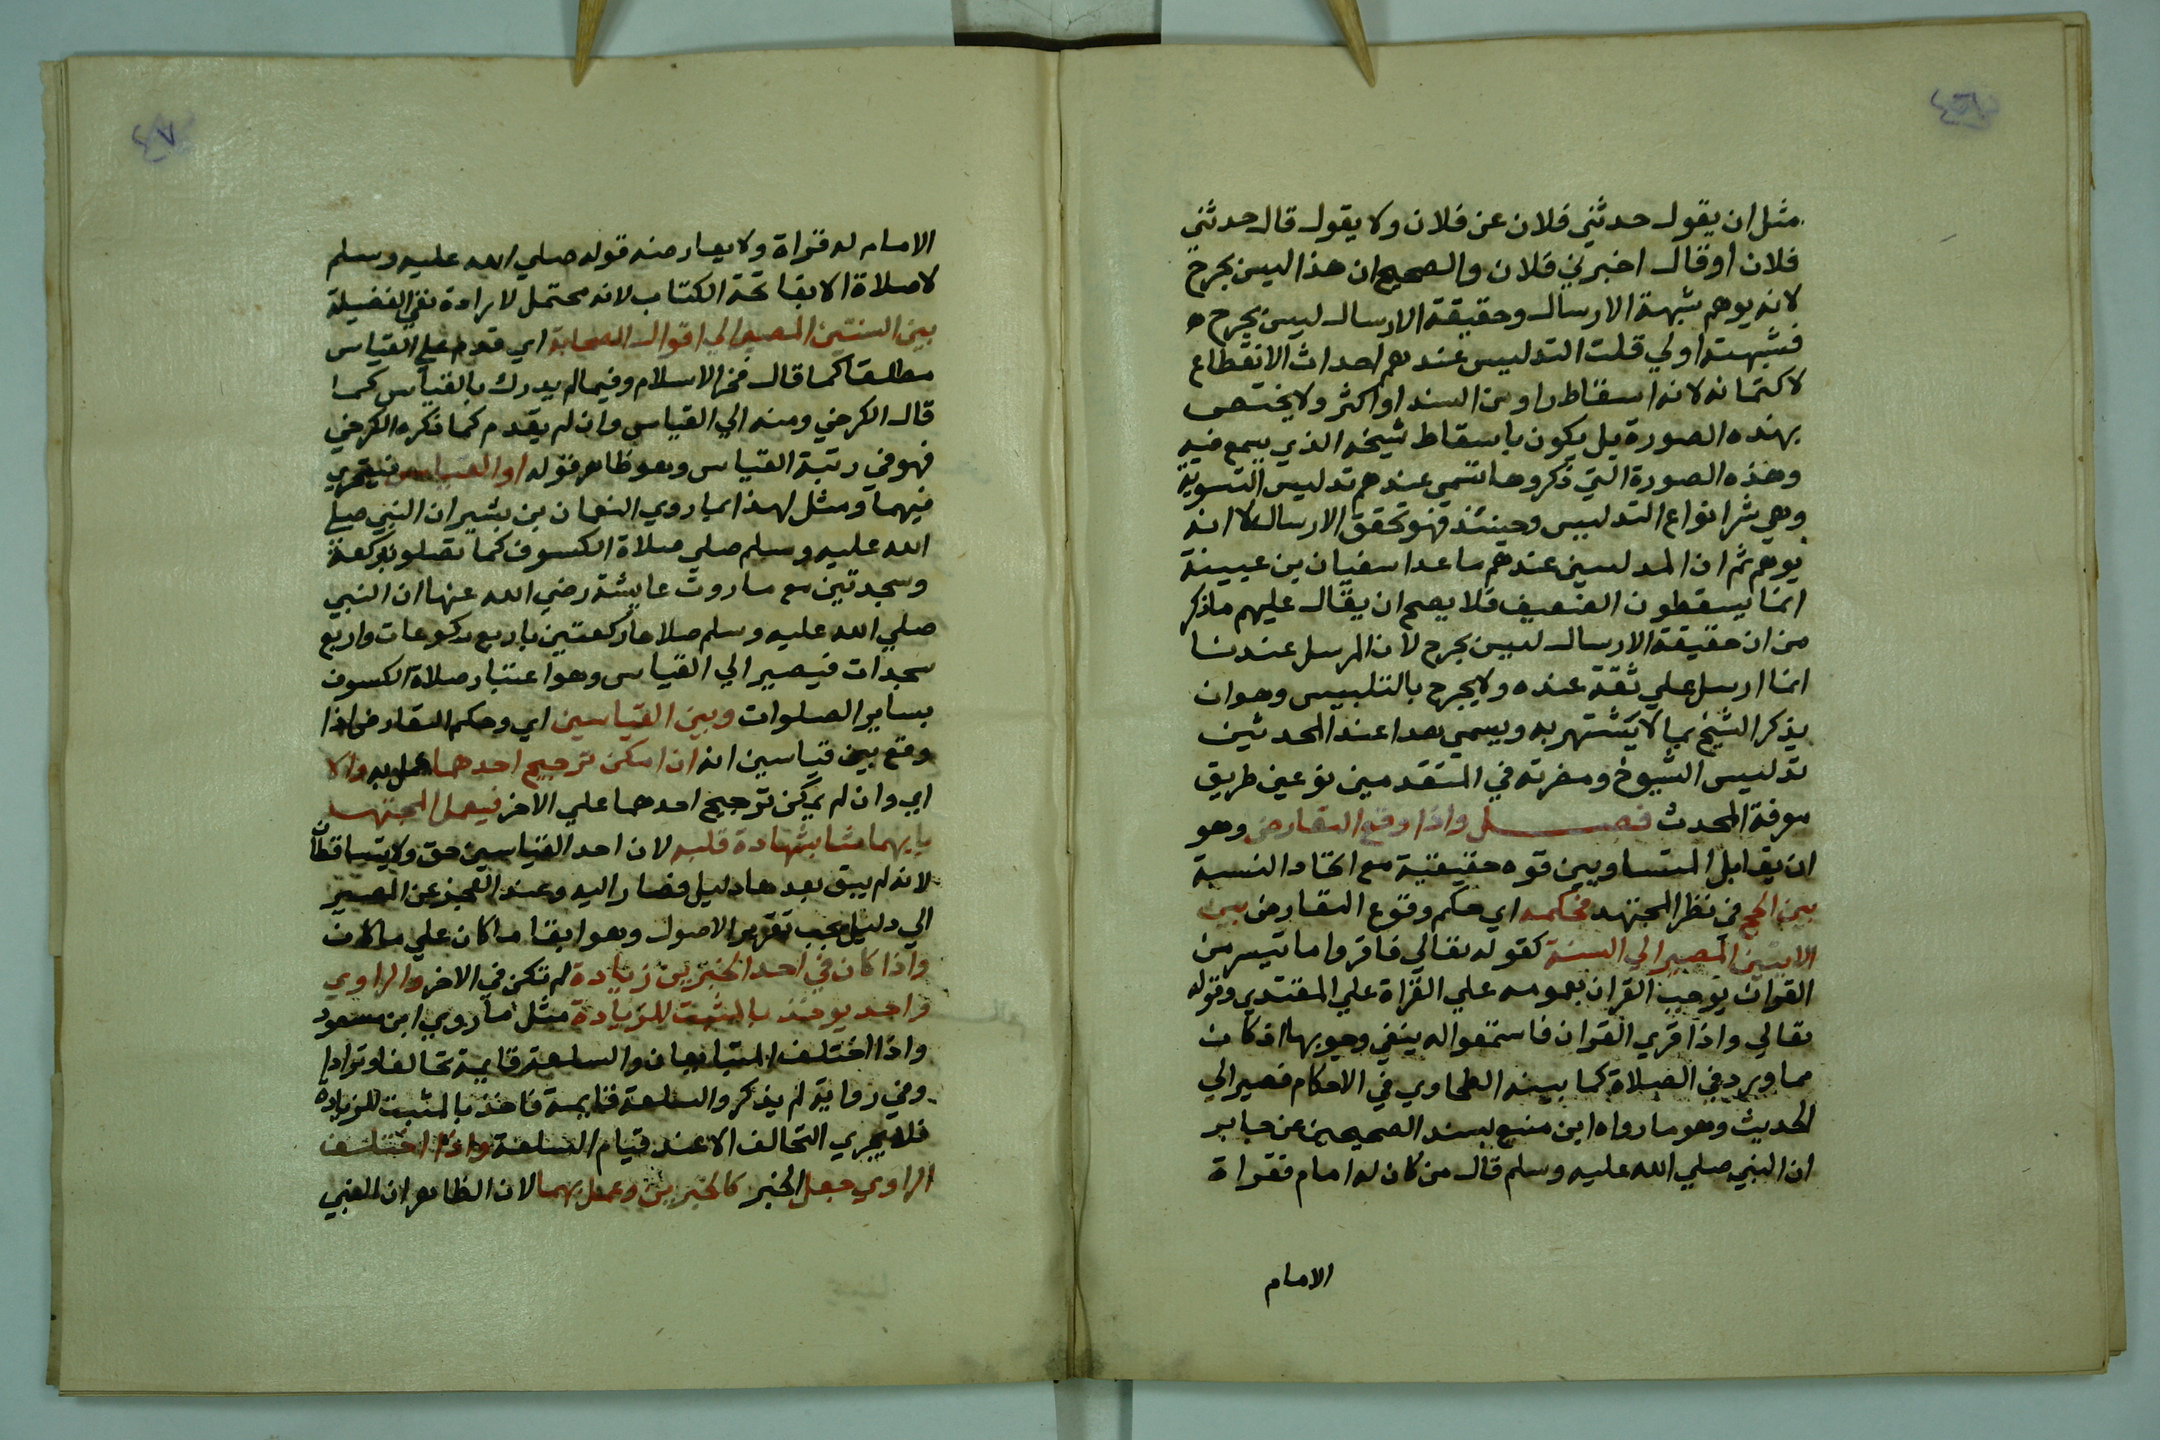 ٤٦
مثل ان يقول حدثني فلان عن فلان ولا يقول قال حدثني
فلان او قال اخبرني فلان والصحيح ان هذا ليس بجرح
لانه يوهم شبهة الارسال وحقيقة الارسال ليس بجرح
فشبهته اولي قلت التدليس عندهم احداث الانقطاع
لا كتمانه لانه اسقاط راو من السند او اكثر ولا يختص
بهذه الصورة بل يكون باسقاط شيخه الذي سمع فيه
وهذه الصورة التي ذكروها تسمي عندهم تدليس التسوية
وهي شر انواع التدليس وحينئذ فهو تحقق الارسال لا انه
يوهم ثم ان المدلسين عندهم ما عدا سفيان بن عيينة
انما يسقطون الضعيف فلا يصح ان يقال عليهم ما ذكر
من ان حقيقة الارسال ليس بجرح لان المرسل عندنا
انما ارسل علي ثقة عنده ولا يجرح بالتلبيس وهو ان
يذكر الشيخ بما لا يشتهر به ويسمي هذا عند المحدثين
تدليس الشيوخ ومضرته في المتقدمين توعين طريق
معرفة المحدث فصل واذا وقع التعارض وهو
ان يتقابل المتساويين قوه حقيقية مع اتحاد النسبة
بين الحجج في نظر المجتهد فحكمه اي حكم وقوع التعارض بين
الايتين المصير الي السنة كقوله تعالي فاقروا ما تيسر من
القران يوجب القران بعمومه علي القراة علي المقتدي وقوله
تعالي واذا قري القران فاستمعوا له ينفي وجوبها اذ كانت
مما ورد في الصلاة كما بينه الطحاوي في الاحكام فصير الي
الحديث وهو ما رواه ابن منيع بسند الصحيحين عن جابر
ان النبي صلي الله عليه وسلم قال من كان له امام فقراة
الامام
٤٧
الامام له قراة ولا يعارضه قوله صلي الله عليه وسلم
لا صلاة الا بفاتحة الكتاب لانه محتمل لارادة نفي الفضيلة
بين السنتين المصير الي اقوال الصحابة اي قدم علي القياس
مطلقا كما قال فخر الاسلام وفيما لم يدرك بالقياس كما
قال الكرخي ومنه الي القياس وان لم يقدم كما ذكره الكرخي
فهو في رتبة القياس وهو ظاهر قوله او القياس فيتحري
فيهما ومثل لهذا بما روي النعمان بن بشير ان النبي صلي
الله عليه وسلم صلي صلاة الكسوف كما تصلون بركعة
وسجدتين مع ما روت عايشة رضي الله عنها ان النبي
صلي الله عليه وسلم صلاها ركعتين باربع ركوعات واربع
سجدات فيصير الي القياس وهو اعتبار صلاة الكسوف
بساير الصلوات وبين القياسين اي وحكم التعارض اذا
وقع بين قياسين انه ان امكن ترجيح احدهما عمل به والا
اي وان لم يمكن ترجيح احدهما علي الاخر فيعمل المجتهد
بايهما شا بشهادة قلبه لان احد القياسين حق ولا يتساقطان
لانه لم يبق بعدها دليل فصار اليه وعند العجز عن المصير
الي دليل يجب تقرير الاصول وهو ابقا ما كان علي ما كان
واذا كان في احد الخبرين زيادة لم تكن في الاخر والراوي
واحد يوخذ بالمثبت للزيادة مثل ما روي ابن مسعود
واذا اختلف المتبايعان والسلعة قايمة تحالفا وترادا
وفي رواية لم يذكر والسلعة قايمة فاخذ بالمثبت للزيادة
فلا يجري التحالف الا عند قيام السلعة واذا اختلف
الراوي جعل الخبر كالخبرين وعمل بهما لان الظاهر ان النبي